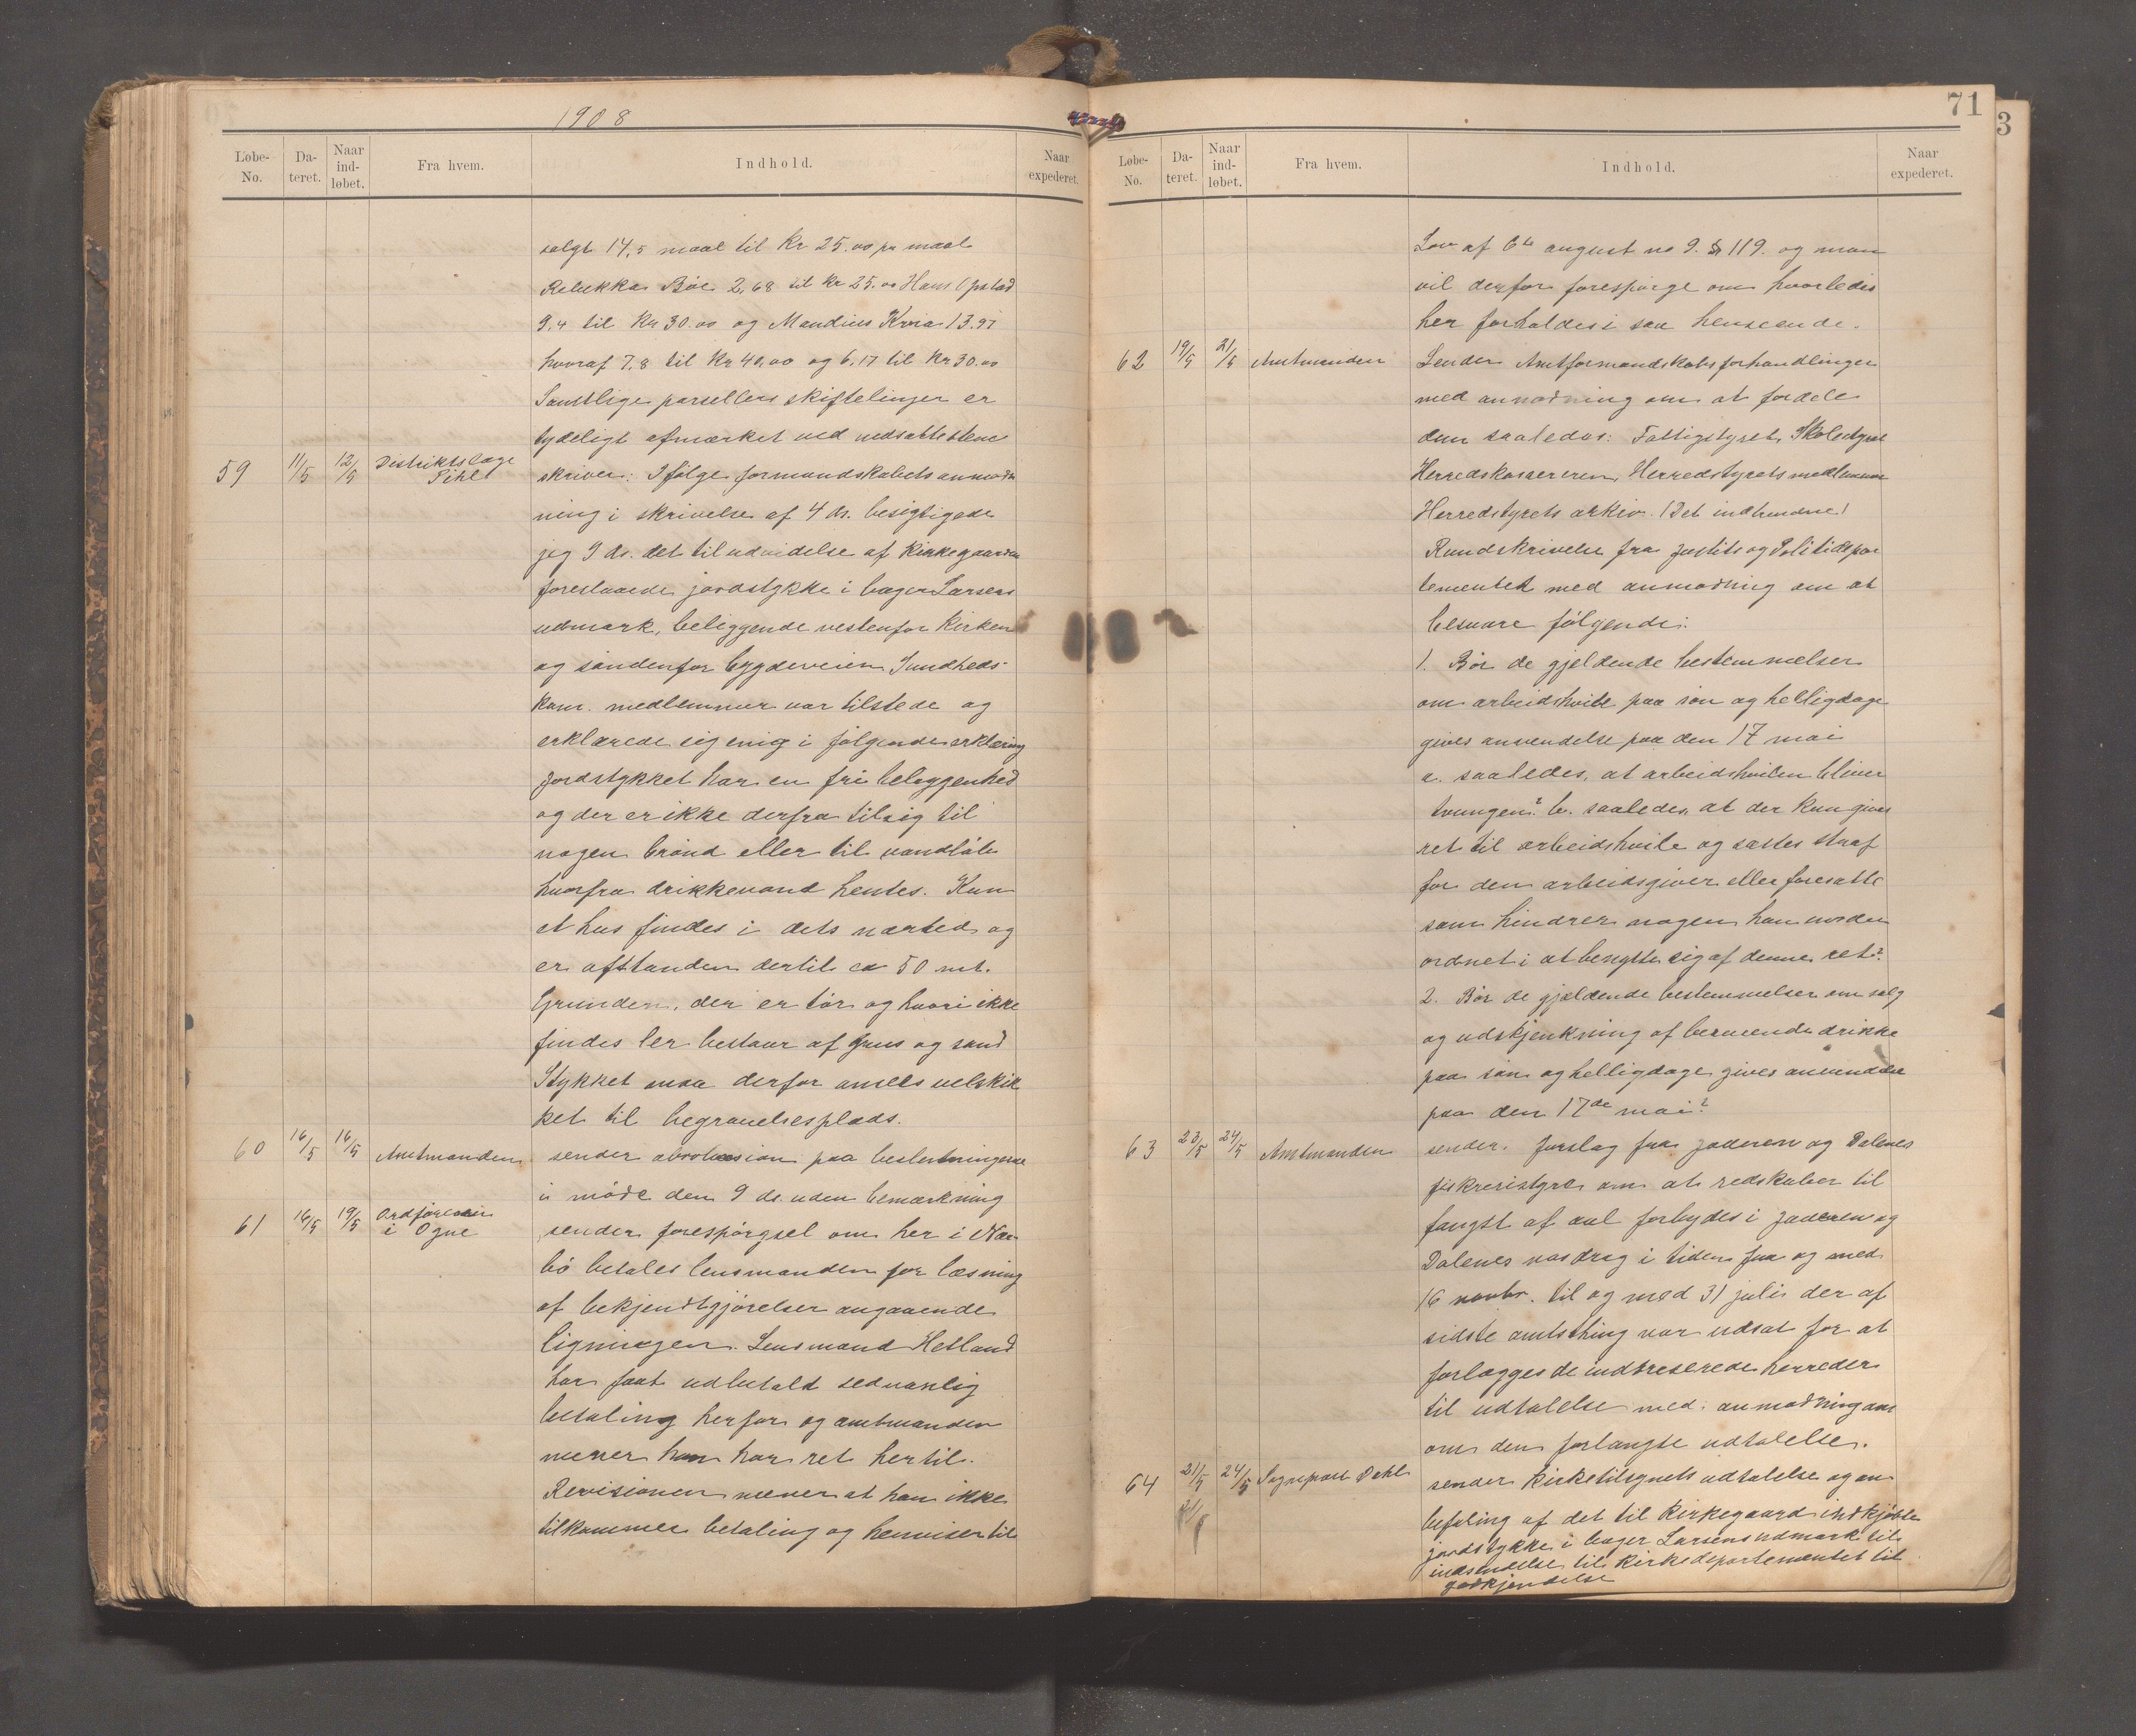 1908
Løbe-No. Da-teret. Naar ind-løbet. Fra hvem. Indhold. Naar expederet.
solgt 14,5 maal til Kr 25.00 pr maal
Rebekka Böe 2,68 til Kr 25.00 Hans Opstad
9,4 til Kr 30.00 og Maudius Kvia 13.97
hvoraf 7,8 til Kr 40,00 og 6,17 til Kr 30.00
Samtlige parsellers skiftelinjer er
tydeligt afmærket ved nedsatte stene
59 11/5 12/5 Distriktslæge Pihl skriver: Ifølge formandskabets anmod
ning i skrivelse af 4 ds. besigtigede
jeg 9 ds. det til udvidelse af Kirkegaarden
foreslaaede jordstykke i bager Larsens
udmark, beliggende vestenfor Kirken
og söndenfor bygdeveien Sundheds-
kom. medlemmer var tilstede og
erklærede sig enig i følgende erklæring
Jordstykket har en fri beliggenhed
og der er ikke derfra tilsig til
nogen brönd eller til vandløb
hvorfra drikkevand hentes. Kun
et hus findes i dets nærhed og
er afstanden dertil ca 50 mt.
Grunden, der er tör og hvori ikke
findes ler bestaar af grus og sand
Stykket maa derfor ansees velskik
ket til begravelsesplads.
60 16/5 16/5 Amtmanden sender paa beslutningerne
i møde den 9 ds. uden bemærkning
61 16/5 19/5 Ordføreren i Ogne sender forespörgsel om her i Nær
bö betales lensmanden for læsning
af bekjendtgjörelser angaaende
ligningen. Lensmand Hetland
har faat udbetalt sedvanlig
betaling herfor og amtmanden
mener han har ret hertil.
Revisionen mener at han ikke
tilkommer betaling og henviser til
71
3
Løbe-No. Da-teret. Naar ind-løbet. Fra hvem. Indhold. Naar expederet.
Lov af 6te august no 9. § 119. og man
vil derfor forespörge om hvorledes
her forholdes i saa henseende.
62 19/5 21/5 Amtmanden Sender Amtformandskabsforhandlinger
med anmodning om at fordele
dem saaledes: Fattigstyret, Skolestyret
Herredskassereren, Herredstyrets medlemmer
Herredstyrets arkiv. (Det indbundne)
Rundskrivelse fra Justits og Politidepar
tementet med anmodning om at
besvare følgende:
1. Bör de gjeldende bestemmelser
om arbeidshvile paa sön og helligdage
gives anvendelse paa den 17 mai
a. saaledes, at arbeidshvilen bliver
tvungen? b. saaledes, at der kun gives
ret til arbeidshvile og sættes straf
for den arbeidsgiver eller foresatte
som hindrer nogen ham under
ordnet i at benytte sig af denne ret?
2. Bör de gjældende bestemmelser om salg
og udskjenkning af berusende drikke
paa sön og helligdage gives anvendelse
paa den 17de mai?
63 23/5 24/5 Amtmanden sender forslag fra Jæderen og Dalenes
fiskeristyre om at redskaber til
fangst af aal forbydes i Jæderen og
Dalenes vasdrag i tiden fra og med
16 novbr. til og med 31 juli der af
sidste amtsthing var udsat for at
forlægges de indtreserede herreder
til udtalelse med anmodning om
om den forlangte udtalelse.
64 21/5 24/5 Sogneprest Dahl sender kirketilsynets udtalelse og an
befaling af det til Kirkegaard indkjöbte
jordstykke i bager Larsens udmark til
indsendelse til Kirkedepartementet til
godkjendelse